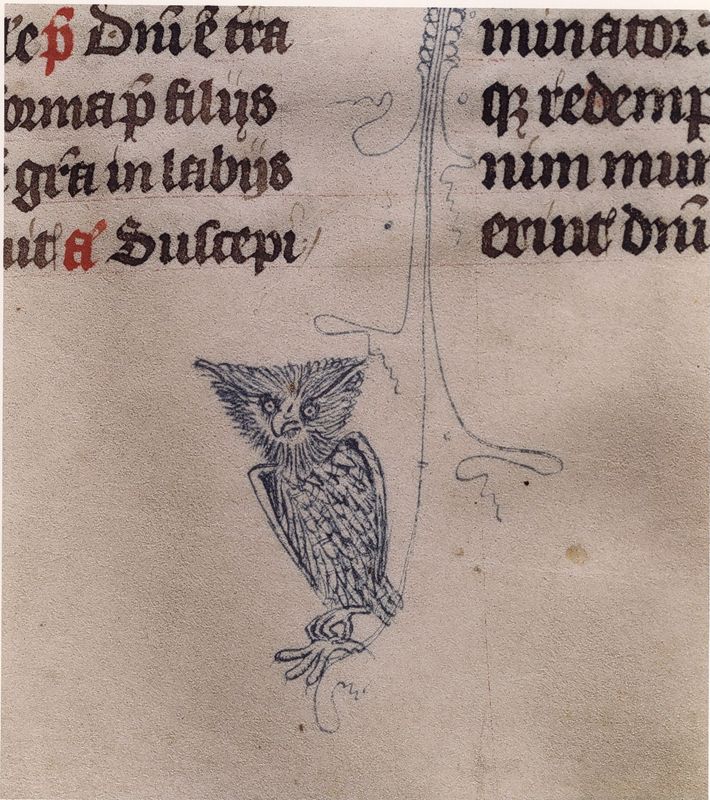 le p̄ Dn̄i ē tra
orma p̄ filijs
gr̄a in labijs
uit a Suscepi
minator
qꝫ redemp
nim mun
erint dn̄i